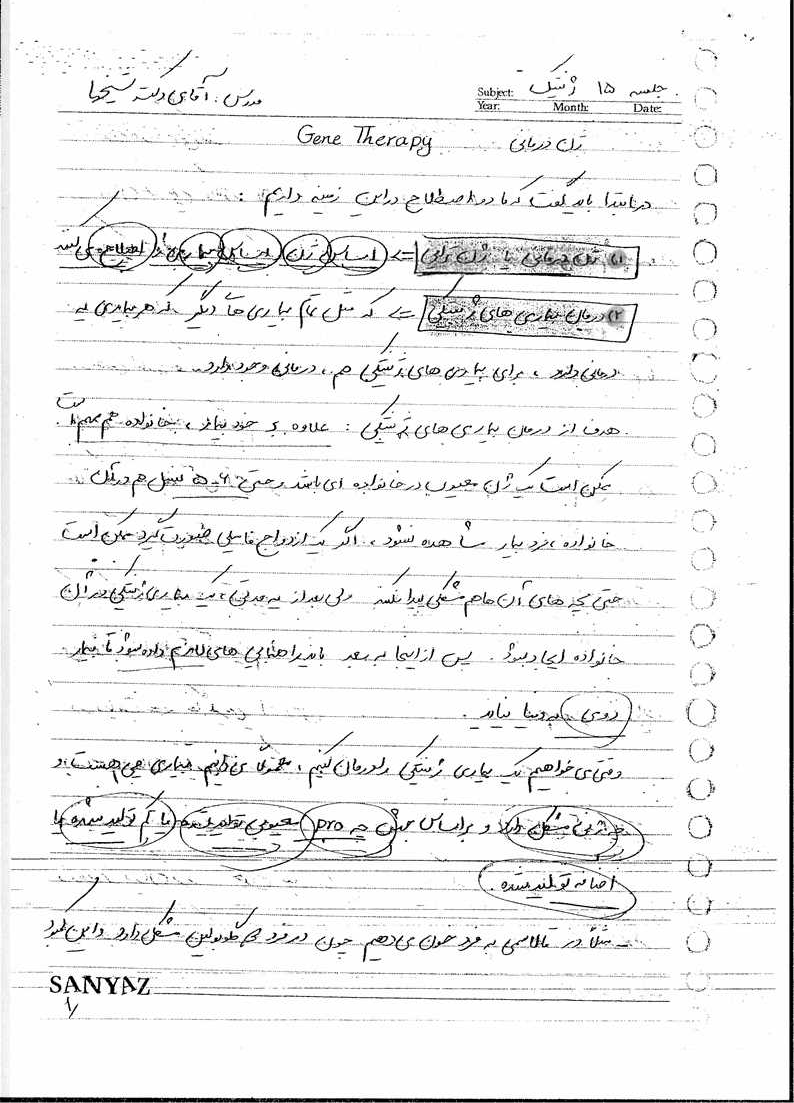 جلسه ۱۵ ژنتیک
Subject:
Year: Month: Date:
مدرس: آقای دکتر شیخها
ژن درمانی Gene Therapy
در ابتدا باید گفت که ما دو اصطلاح در این زمینه داریم :
۱) ژن درمانی یا ژن تراپی => اساس ژن اساس بیماری را اصلاح می کند
۲) درمان بیماری های ژنتیکی => که مثل تمام بیماری های دیگر که هر بیماری یه
درمانی دارد ، برای بیماری های ژنتیکی هم ، درمانی وجود دارد.
هدف از درمان بیماری های ژنتیکی : علاوه بر خود بیمار ، خانواده هم مهم است.
ممکن است یک ژن معیوب در خانواده ای باشد و حتی ۶-۵ نسل هم در آن
خانواده ، فرد بیمار مشاهده نشود ، اگر یک ازدواج فامیلی صورت گیرد ممکن است
حتی بچه های آن ها هم مشکلی پیدا نکنند ولی بعد از یه مدتی ، یک بیماری ژنتیکی در آن
خانواده ایجاد شود. پس از اینجا به بعد باید راهنمایی های لازم داده شود تا بیمار
دومی به دنیا نیاید.
وقتی می خواهیم یک بیماری ژنتیکی را درمان کنیم ، معمولاً می دانیم بیماری چی هست و
چه ژنی مشکل دارد و براساس چه pro معیوبی تولید شده یا کم تولید شده یا
اضافه تولید شده.
- مثلاً در تالاسمی به فرد خون می دهیم چون در فرد گلوبولین مشکل دارد و این کمبود
SANYAZ
۱